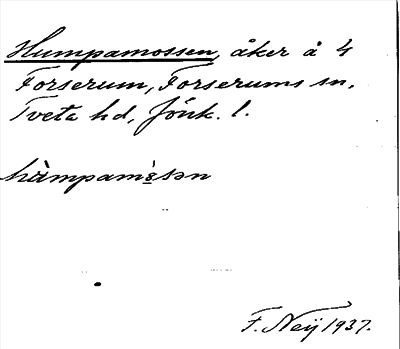 Humpamossen, åker å 4
Forserum, Forserums sn,
Tveta hd, Jönk. l.
hùmpamòsən
F. Neÿ 1937.